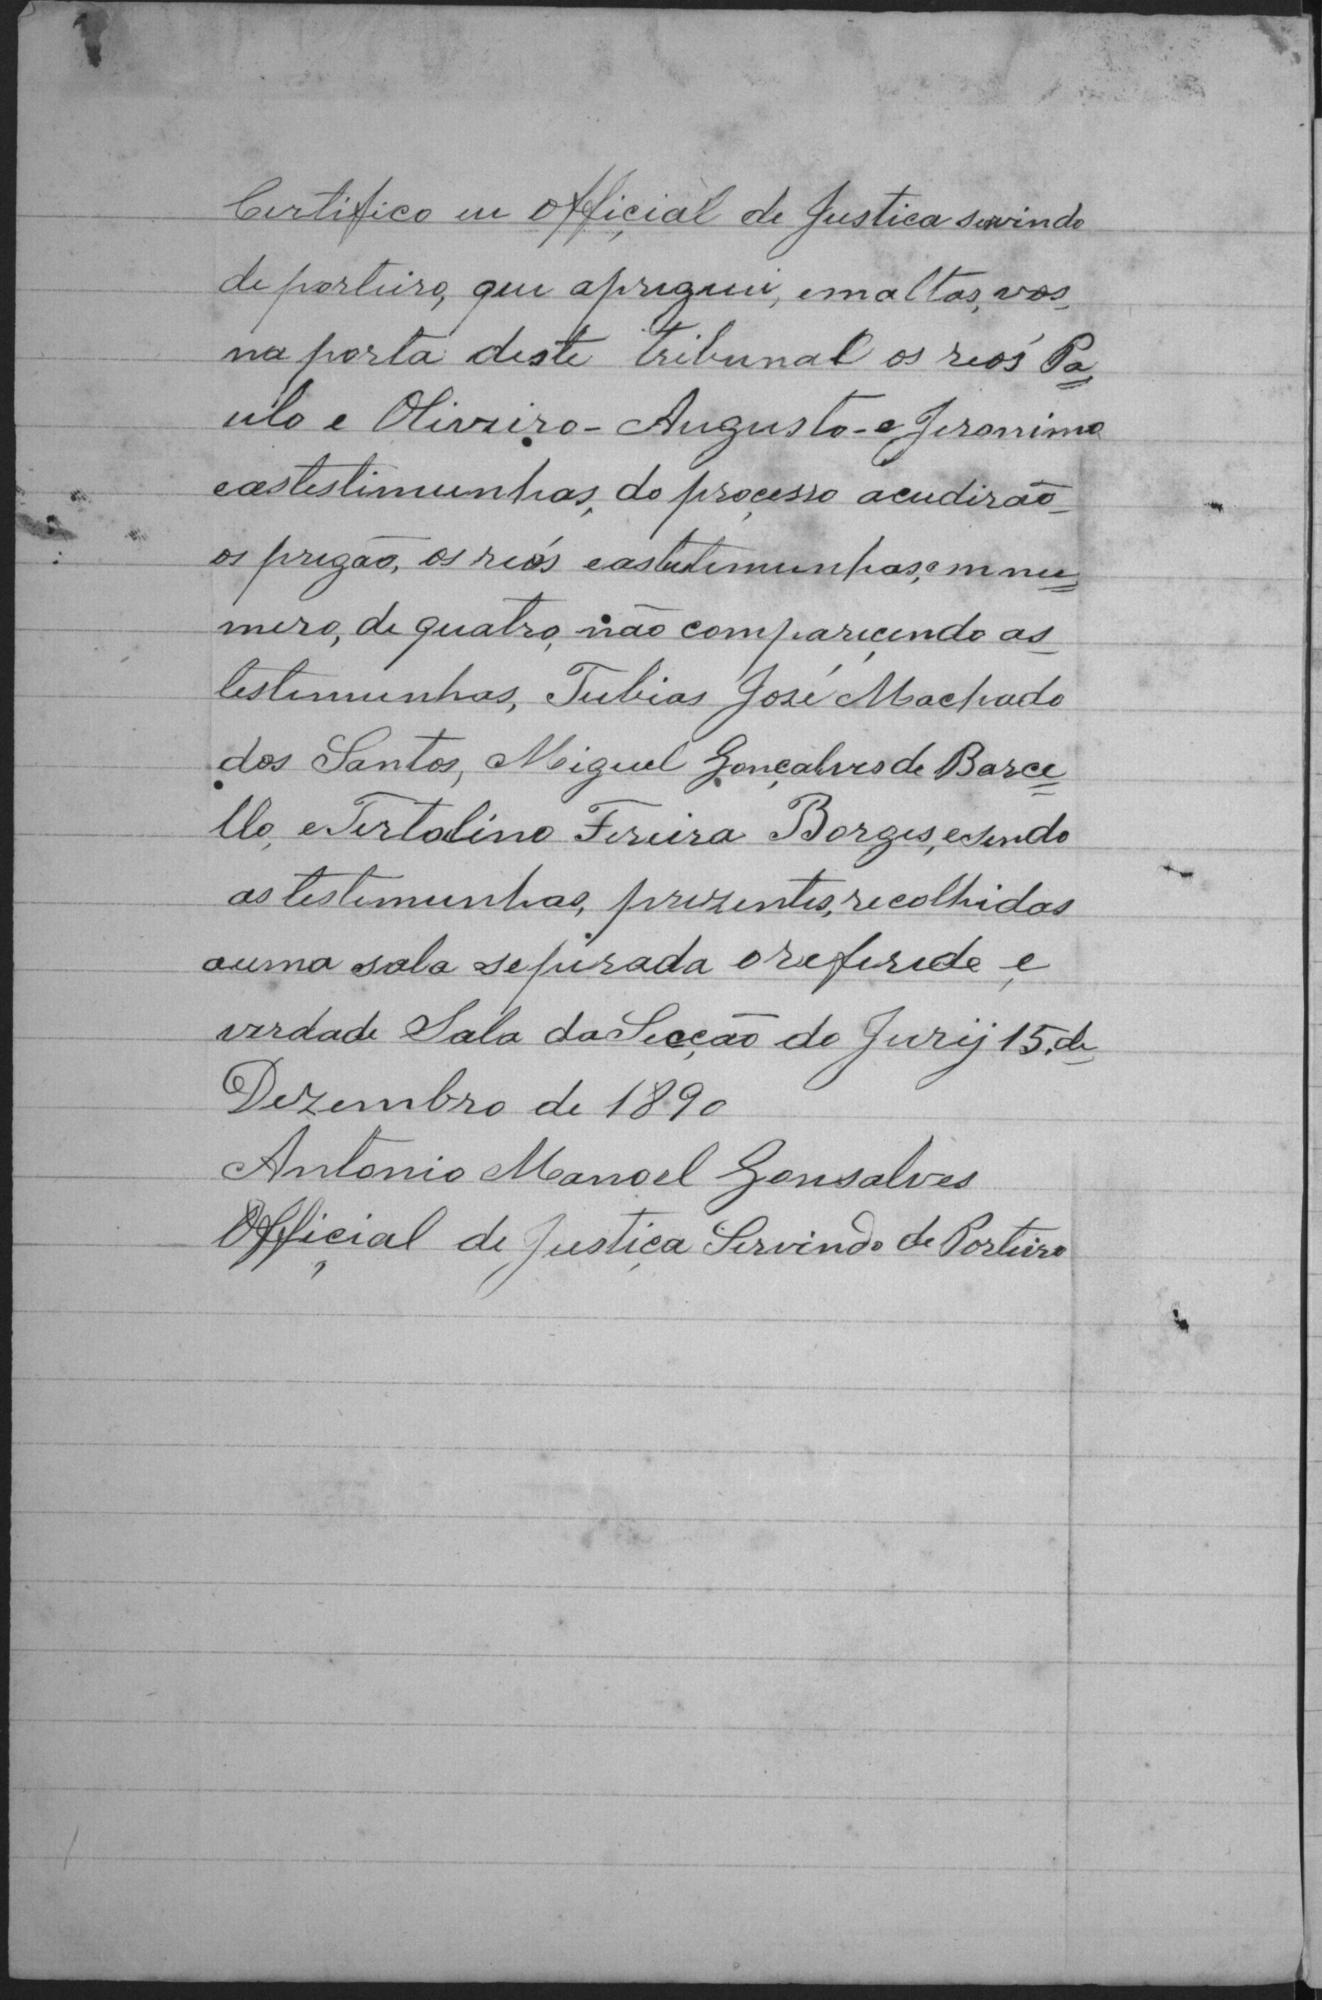 Certifico eu Offiçial de Justica servindo
de porteiro, que apreguei, em altas, vos
na porta deste tribunal os reós Pa=
ulo e Oliveiro - Augusto - e Jeronimo
eas testimunhas, do proçesso acudirão
os pregão, os reós eas testimunhas, em nu=
mero, de quatro, não compareçendo as
testimunhas, Tubias José Machado
dos Santos, Miguel Gonçalves de Barce=
llo, e Tertolino Fereira Borges, e sendo
as testemunhas, prezentes, recolhidas
a uma sala seperada o referede e
verdade Sala da Secção do Jurij 15, de
Dezembro de 1890
Antonio Manoel Gonsalves
Offiçial de Justiça Servindo de Porteiro